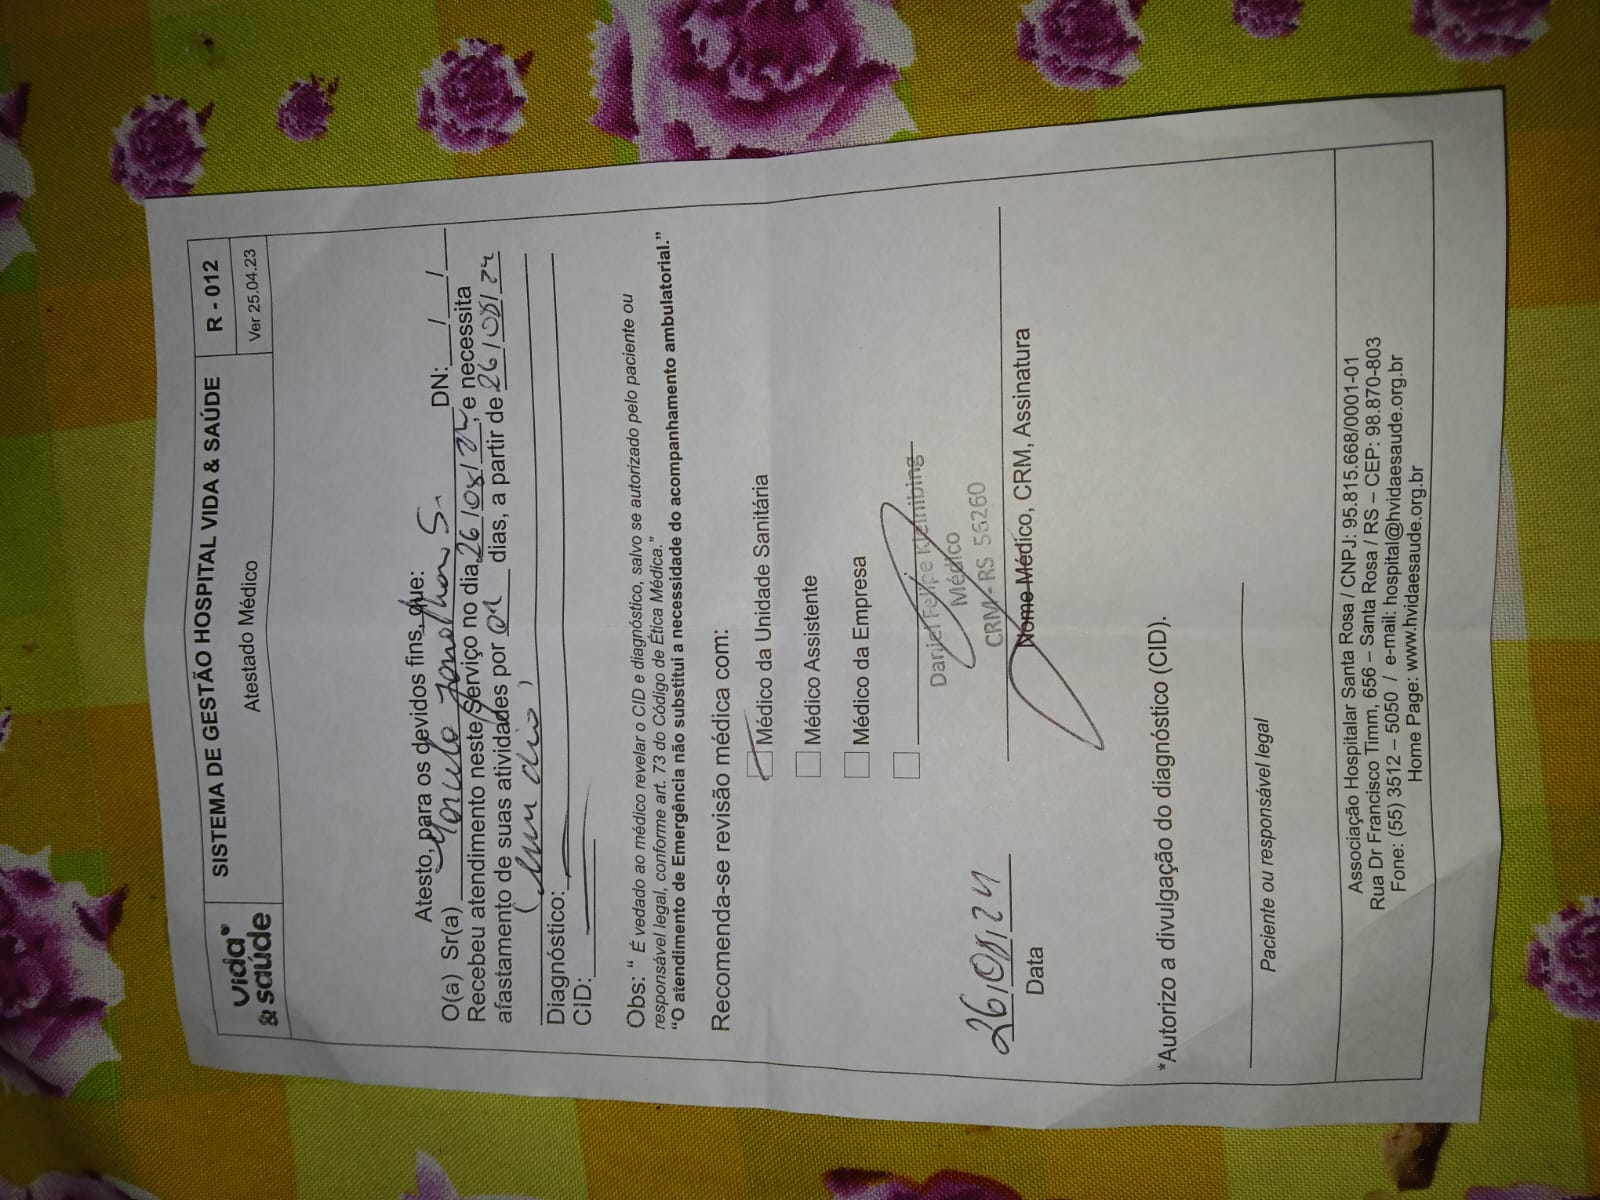 Vida
& saúde
SISTEMA DE GESTÃO HOSPITAL VIDA & SAÚDE
R - 012
Atestado Médico
Ver 25.04.23
Atesto, para os devidos fins, que:
O(a) Sr(a) S. DN: / /
Recebeu atendimento neste Serviço no dia 26/08/24, e necessita
afastamento de suas atividades por 01 dias, a partir de 26/08/24
(um dia)
Diagnóstico:
CID:
Obs: “ É vedado ao médico revelar o CID e diagnóstico, salvo se autorizado pelo paciente ou
responsável legal, conforme art. 73 do Código de Ética Médica.”
“O atendimento de Emergência não substitui a necessidade do acompanhamento ambulatorial.”
Recomenda-se revisão médica com:
Médico da Unidade Sanitária
Médico Assistente
Médico da Empresa
Daniel Felipe Kleinibing
Médico
CRM-RS 56260
26/08/24
Data
Nome Médico, CRM, Assinatura
*Autorizo a divulgação do diagnóstico (CID).
Paciente ou responsável legal
Associação Hospitalar Santa Rosa / CNPJ: 95.815.668/0001-01
Rua Dr Francisco Timm, 656 – Santa Rosa / RS – CEP: 98.870-803
Fone: (55) 3512 – 5050 / e-mail: hospital@hvidaesaude.org.br
Home Page: www.hvidaesaude.org.br